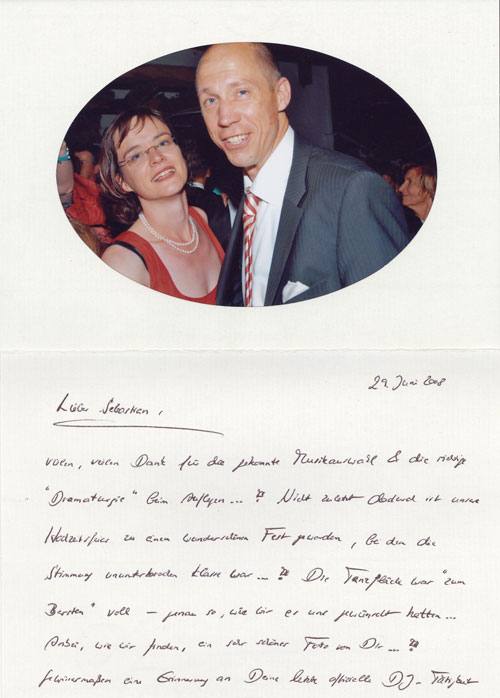 29. Juni 2008
Lieber Sebastian,
vielen, vielen Dank für die gekonnte Musikauswahl & die richtige
"Dramaturgie" beim Auflegen...!! Nicht zuletzt dadurch ist unsere
Hochzeitsfeier zu einem wunderschönen Fest geworden, bei dem die
Stimmung ununterbrochen klasse war...!! Die Tanzfläche war "zum
Bersten" voll – genau so, wie wir es uns gewünscht hatten...
Anbei, wie wir finden, ein sehr schönes Foto von Dir...!!
gewissermaßen eine Erinnerung an Deine letzte offizielle DJ-Tätigkeit